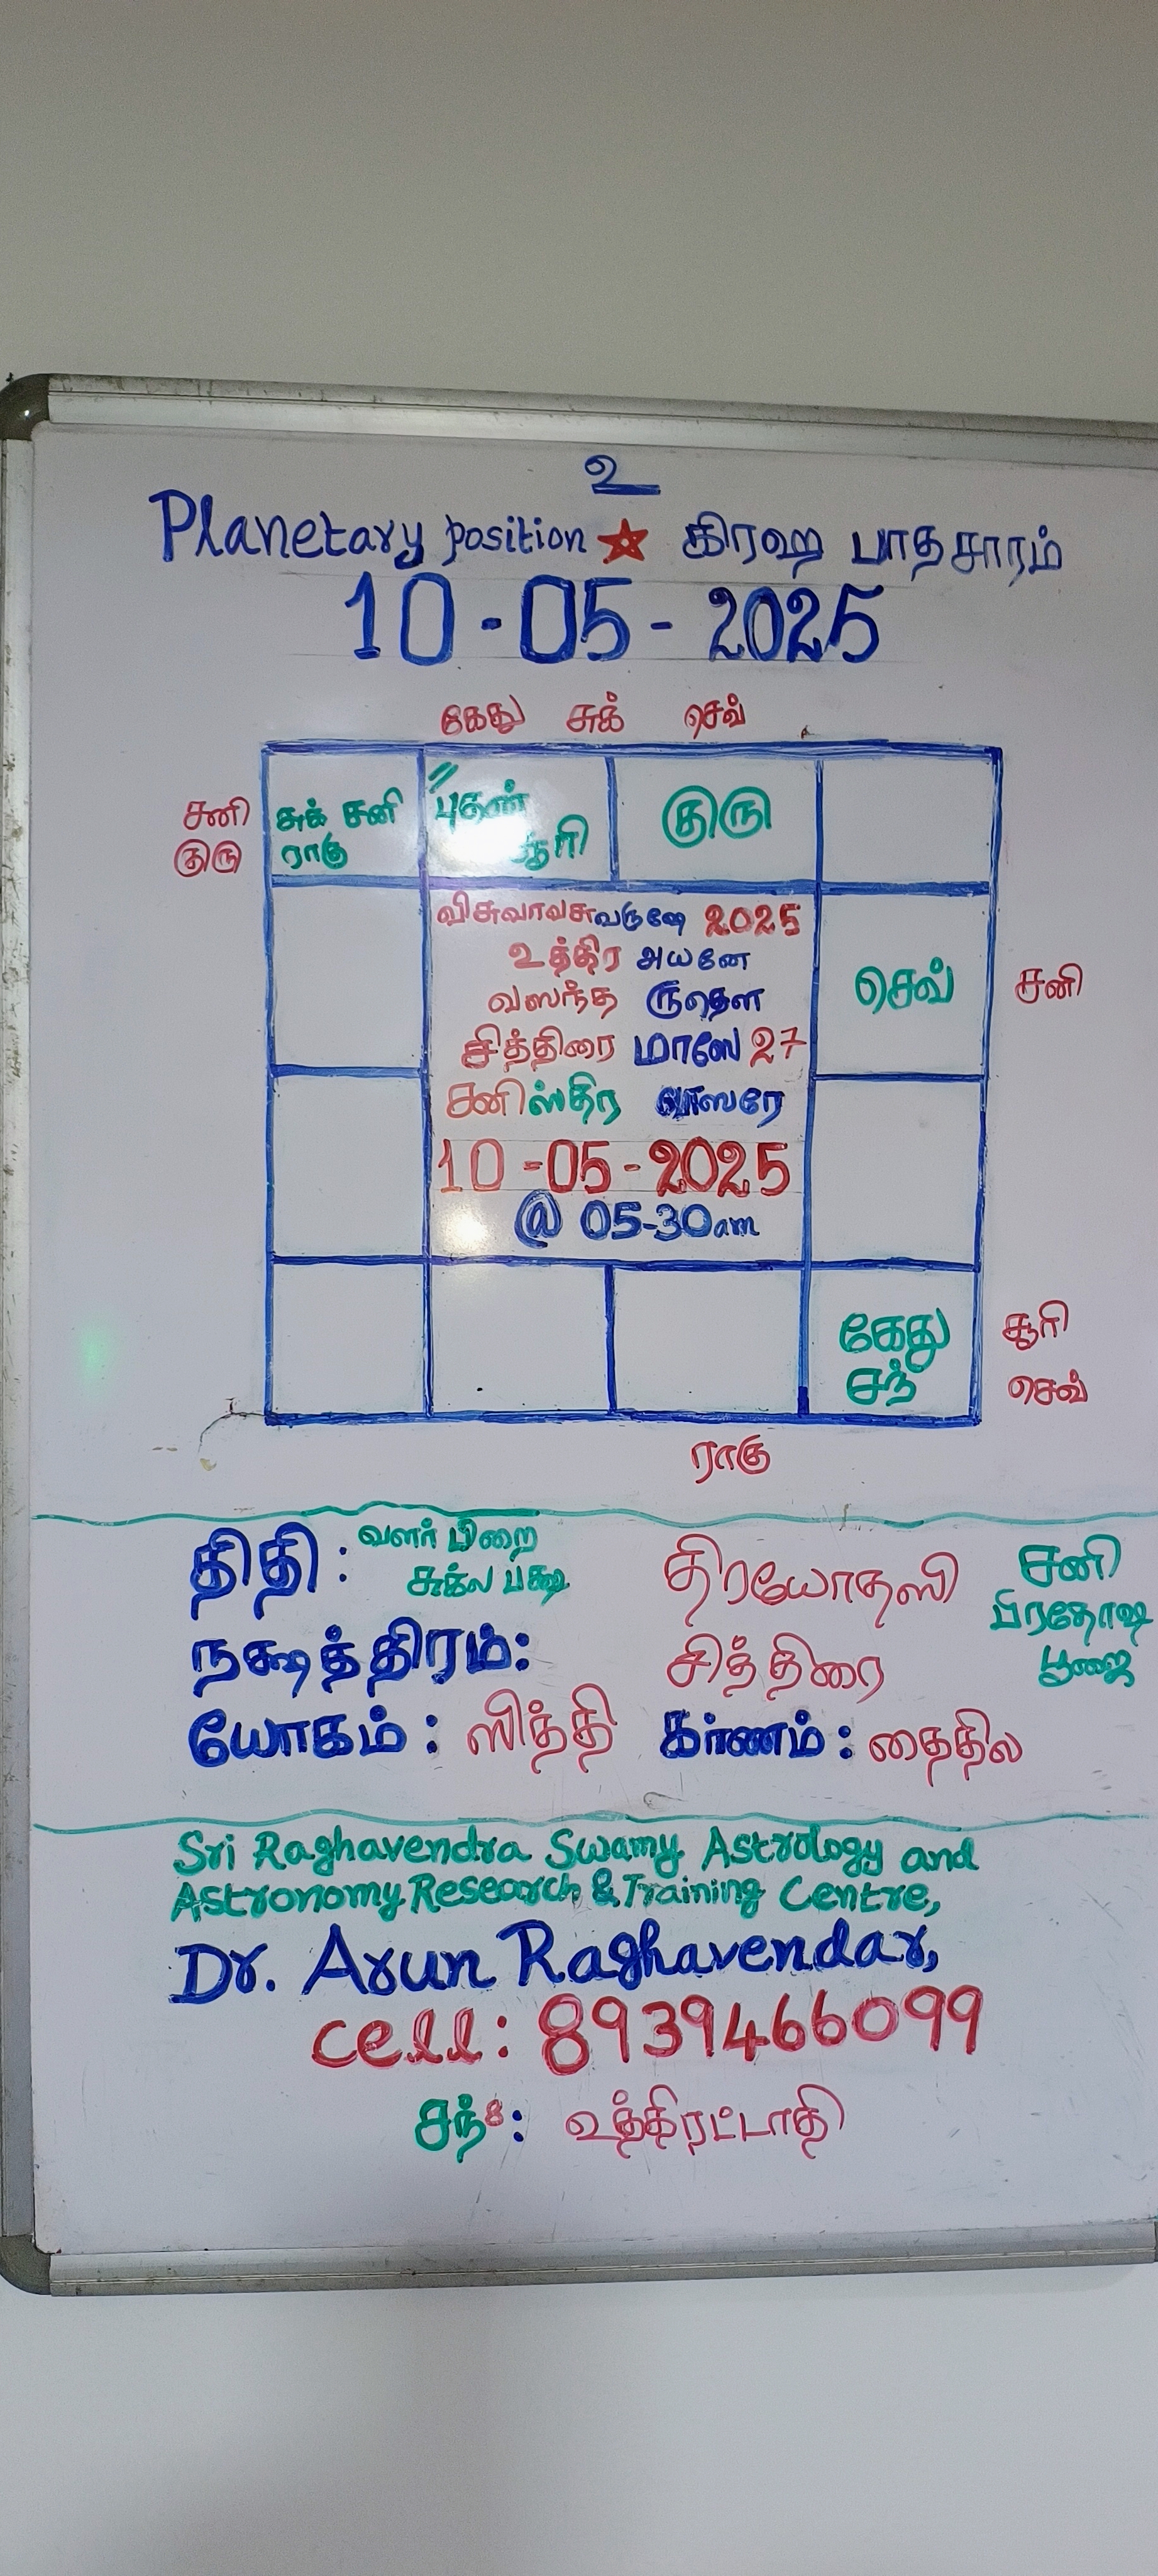 உ
Planetary position ☆ கிரஹ பாதசாரம்
10-05-2025
கேது சுக் செவ்
சனி
குரு
சுக் சனி
ராகு
புதன்
சூரி
குரு
விசுவாவசுவருஷே 2025
உத்திர அயனே
வஸந்த ருதௌ
சித்திரை மாஸே 27
சனிஸ்திர வாஸரே
10-05-2025
@ 05-30am
செவ்
சனி
கேது
சந்
சூரி
செவ்
ராகு
திதி : வளர் பிறை
சுக்ல பக்ஷ
திரயோதஸி
சனி
பிரதோஷ
பூஜை
நக்ஷத்திரம்: சித்திரை
யோகம் : ஸித்தி கர்ணம் : தைதில
Sri Raghavendra Swamy Astrology and
Astronomy Research & Training Centre,
Dr. Arun Raghavendar,
cell: 8939466099
சந்8: உத்திரட்டாதி